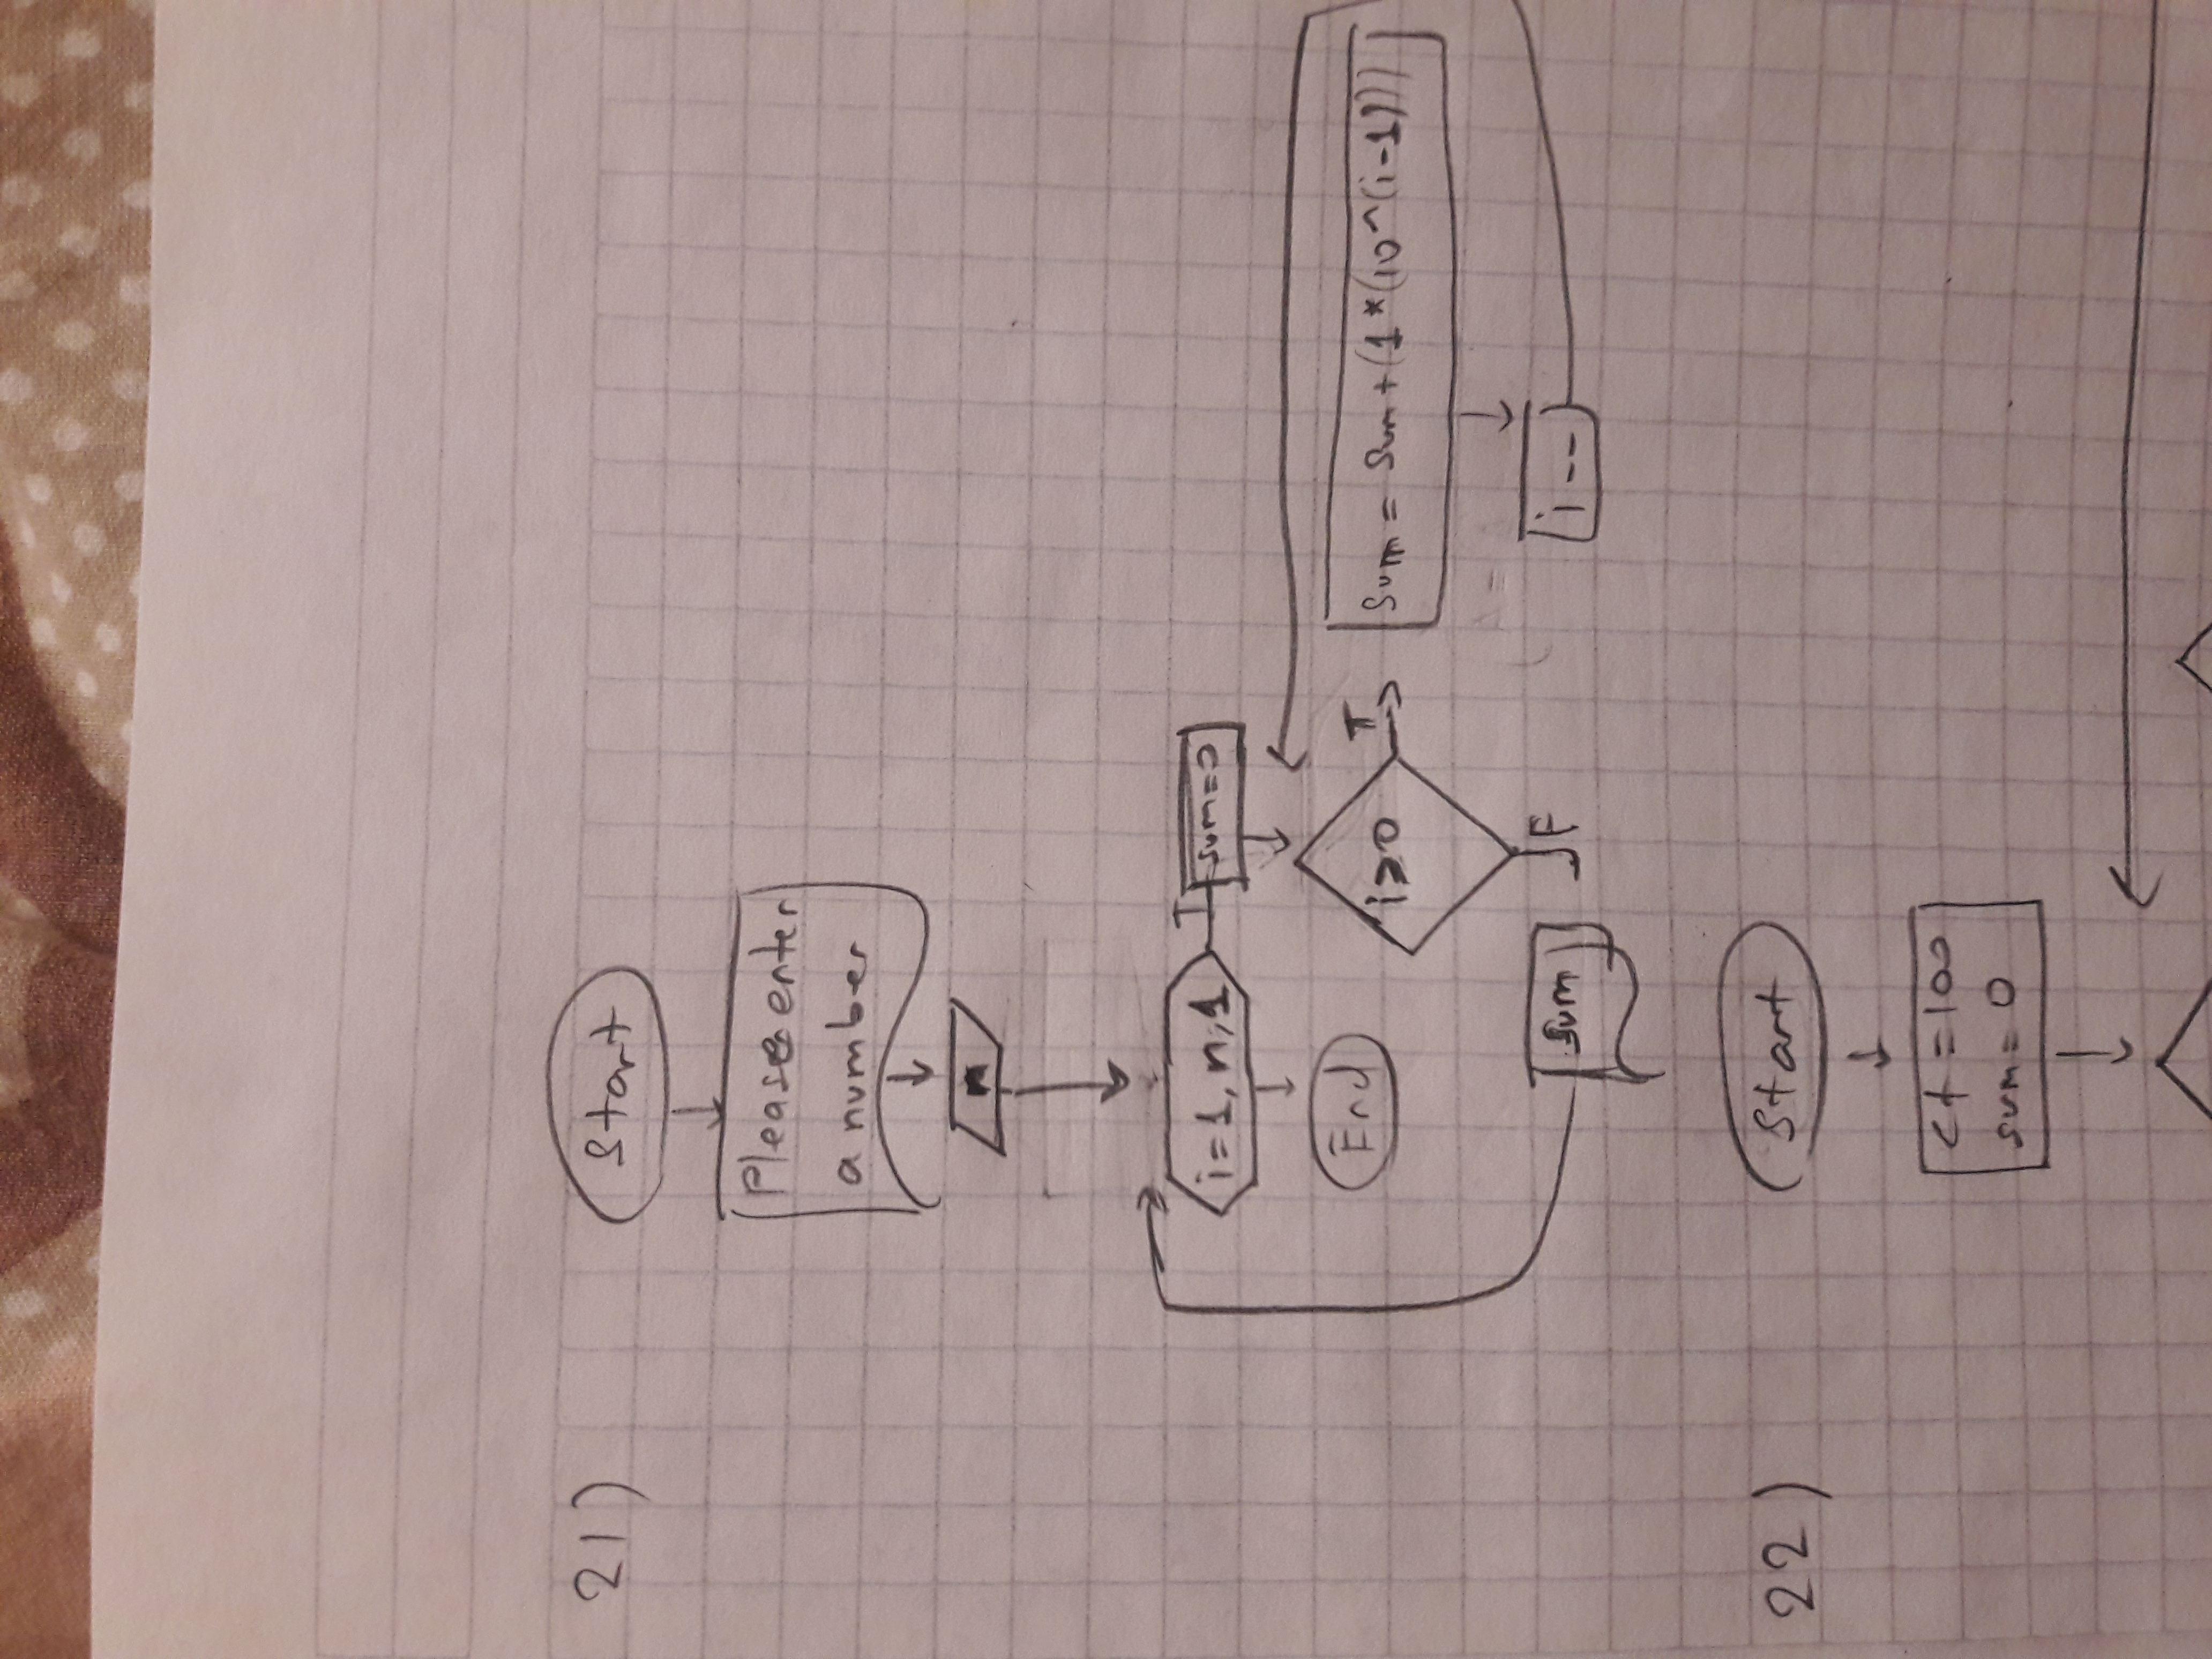 21)
Start
Please enter
a number
n
i=1, n, 1
T
sum=0
End
i>0
T
Sum = Sum+(1*(10^(i-1)))
F
sum
i--
22)
Start
ct=100
sum=0